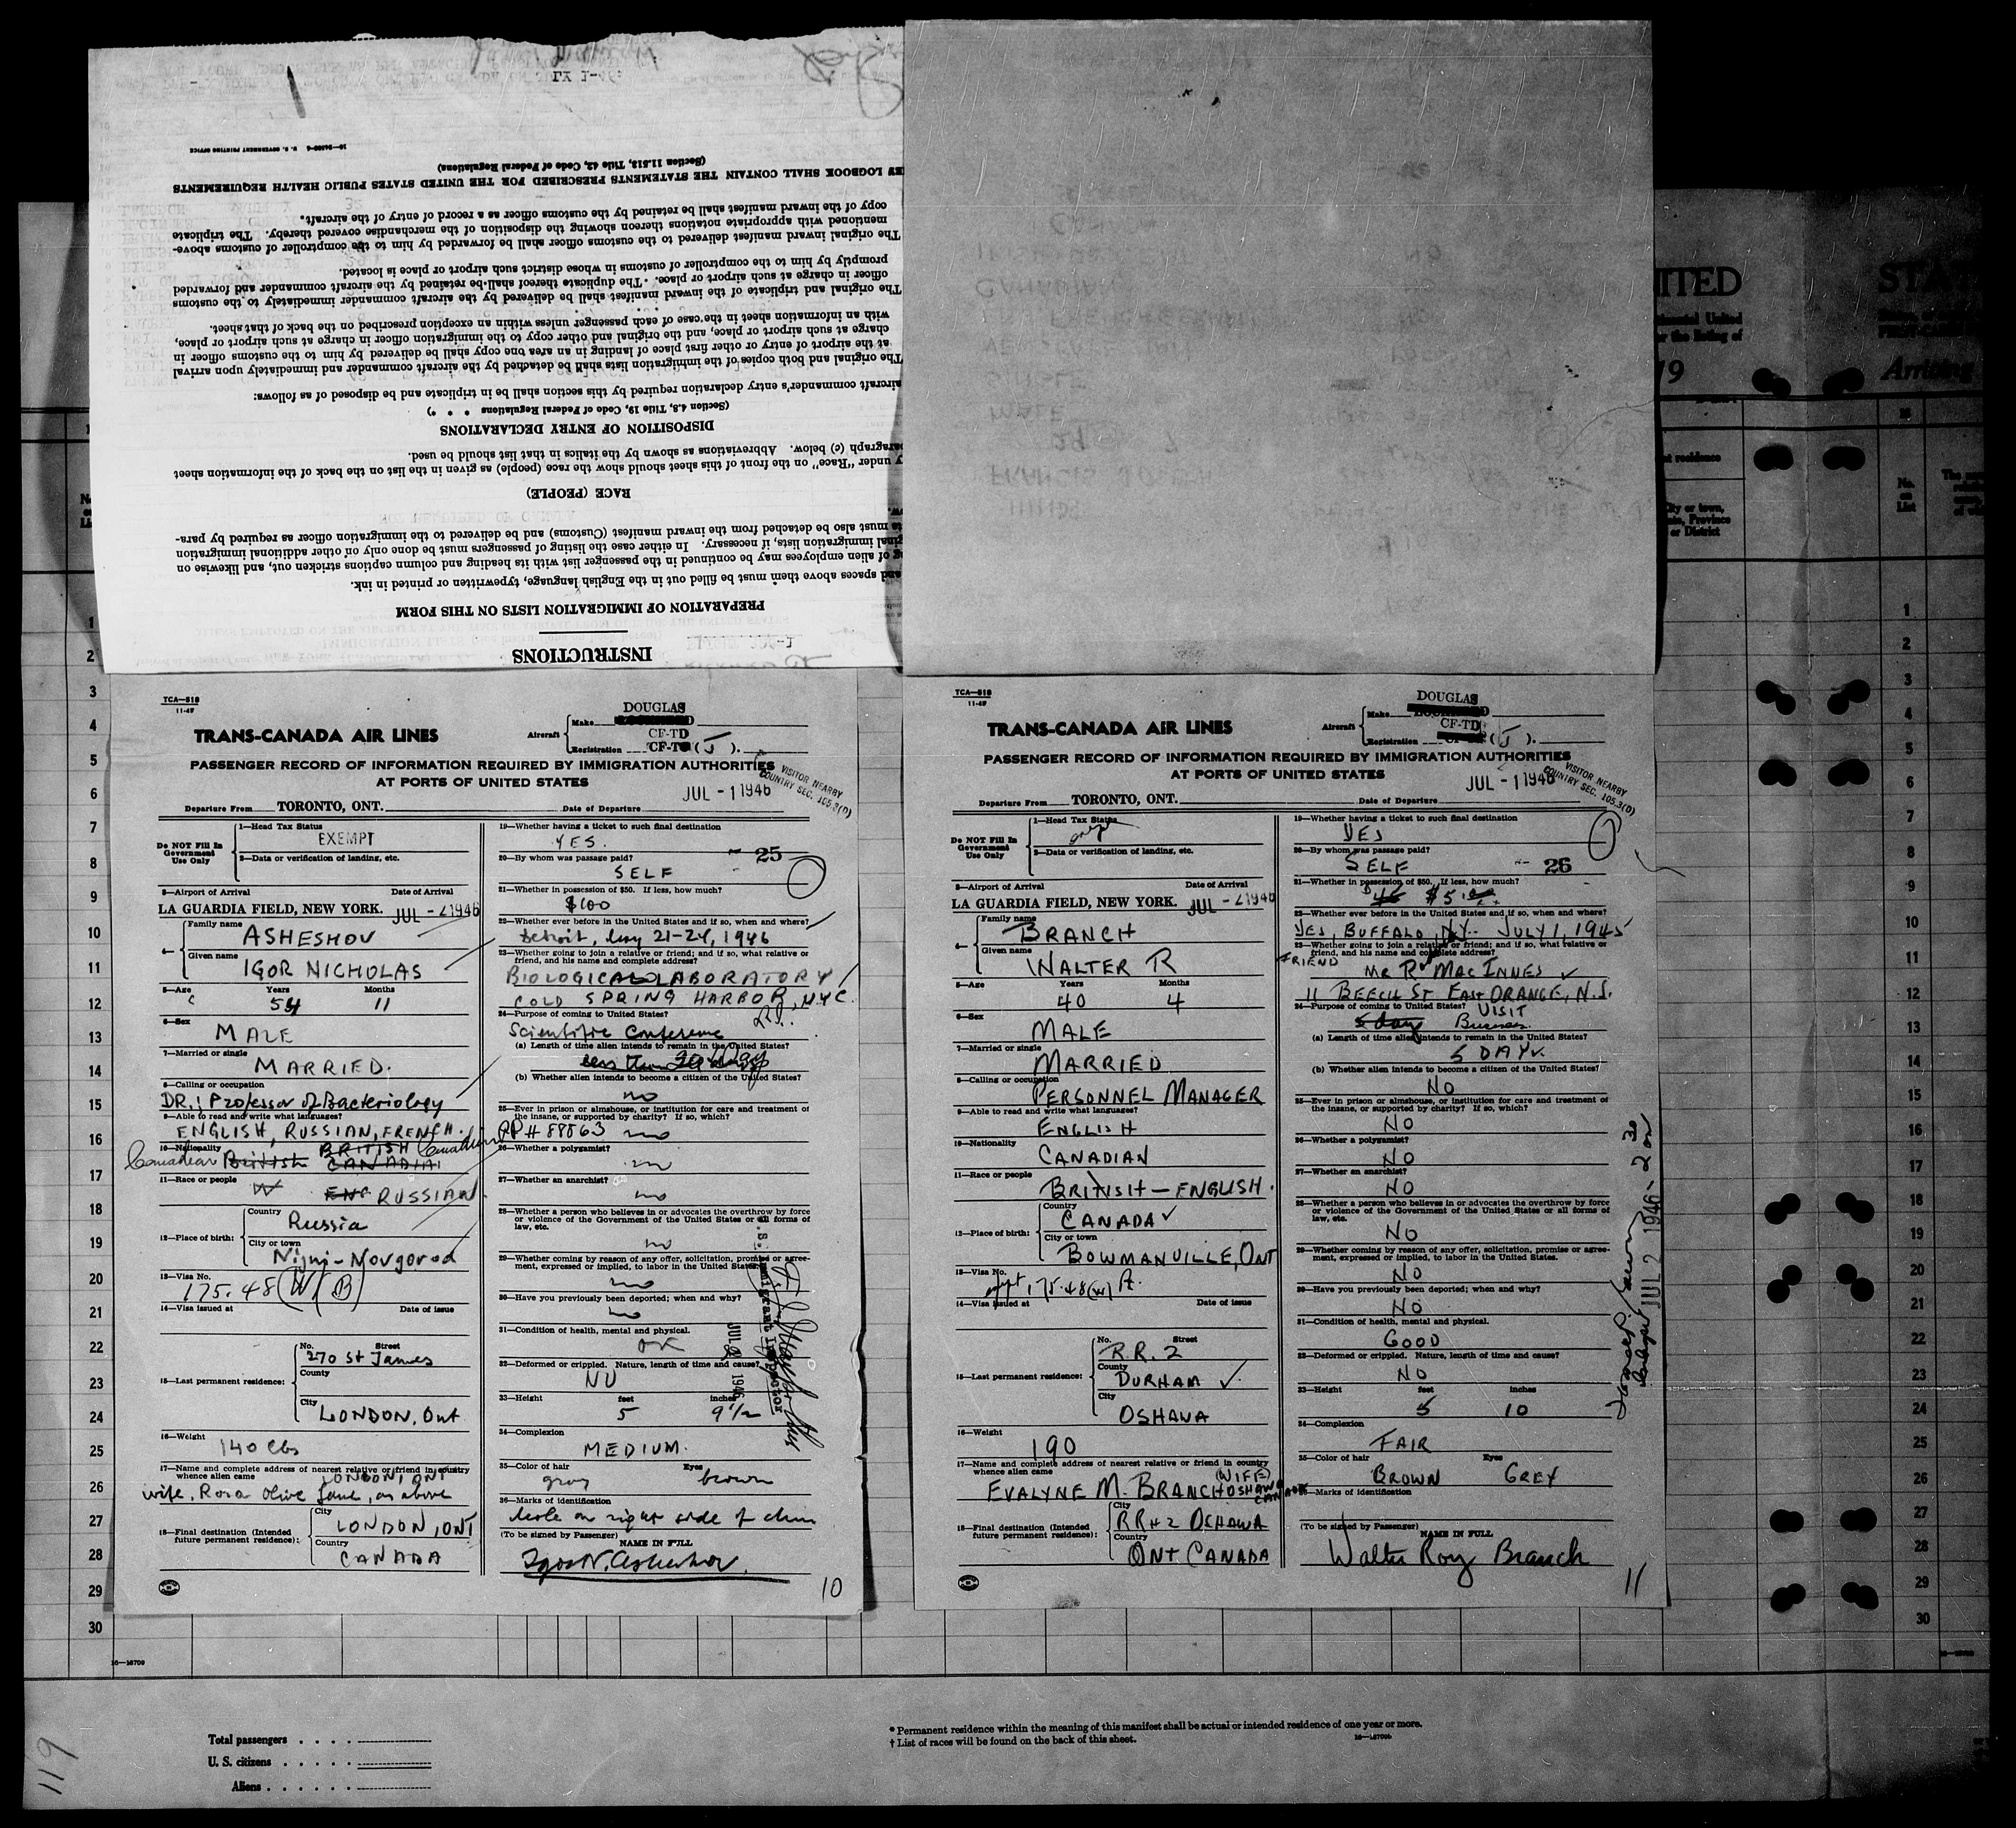 INSTRUCTIONS
PREPARATION OF IMMIGRATION LISTS ON THIS FORM
and spaces above them must be filled out in the English language, typewritten or printed in ink.
of alien employees may be continued in the passenger list with its heading and column captions stricken out, and likewise on
immigration lists, if necessary. In either case the listing of passengers must be done only on other additional immigration
must also be detached from the inward manifest (Customs) and be delivered to the immigration officer as required by para-
RACE (PEOPLE)
under "Race" on the front of this sheet should show the race (people) as given in the list on the back of the information sheet
paragraph (c) below. Abbreviations as shown by the italics in that list should be used.
DISPOSITION OF ENTRY DECLARATIONS
(Section 4.8, Title 19, Code of Federal Regulations * * *)
aircraft commander's entry declaration required by this section shall be in triplicate and be disposed of as follows:
The original and both copies of the immigration lists shall be detached by the aircraft commander and immediately upon arrival
at the airport of entry or other first place of landing in an area one copy shall be delivered by him to the customs officer in
charge at such airport or place, and the original and other copy to the immigration officer in charge at such airport or place,
with an information sheet in the case of each passenger unless within an exception prescribed on the back of that sheet.
The original and triplicate of the inward manifest shall be delivered by the aircraft commander immediately to the customs
officer in charge at such airport or place. The duplicate thereof shall be retained by the aircraft commander and forwarded
promptly by him to the comptroller of customs in whose district such airport or place is located.
The original inward manifest delivered to the customs officer shall be forwarded by him to the comptroller of customs above-
mentioned with appropriate notations thereon showing the disposition of the merchandise covered thereby. The triplicate
copy of the inward manifest shall be retained by the customs officer as a record of entry of the aircraft.
LOGBOOK SHALL CONTAIN THE STATEMENTS PRESCRIBED FOR THE UNITED STATES PUBLIC HEALTH REQUIREMENTS
(Section 11.513, Title 42, Code of Federal Regulations)
U. S. GOVERNMENT PRINTING OFFICE
TCA—518
11-45
DOUGLAS
TRANS-CANADA AIR LINES
Aircraft
Make
CF-TD
Registration CF-T (J).
PASSENGER RECORD OF INFORMATION REQUIRED BY IMMIGRATION AUTHORITIES
AT PORTS OF UNITED STATES
VISITOR NEARBY
COUNTRY SEC. 105.3(D)
JUL - 1 1946
Departure From TORONTO, ONT. Date of Departure
Do NOT Fill In
Government
Use Only
1—Head Tax Status
EXEMPT
2—Data or verification of landing, etc.
3—Airport of Arrival Date of Arrival
LA GUARDIA FIELD, NEW YORK. JUL - 2 1946
4— Family name
ASHESHOV
Given name
IGOR NICHOLAS
5—Age Years Months
54 11
6—Sex
MALE
7—Married or single
MARRIED.
8—Calling or occupation
DR.; Professor of Bacteriology
9—Able to read and write what languages?
ENGLISH, RUSSIAN, FRENCH.
10—Nationality
Canadian British BRITISH CANADIAN Canadian
11—Race or people
W ENG RUSSIAN
12—Place of birth:
Country
Russia
City or town
Nijni-Novgorod
13—Visa No.
175.48 (W) (B)
14—Visa issued at Date of issue
15—Last permanent residence:
No. Street
270 St James
County
City
LONDON, Ont
16—Weight
140 lbs
17—Name and complete address of nearest relative or friend in country
whence alien came
LONDON, ONT
wife, Rosa Olive Jane, as above
18—Final destination (Intended
future permanent residence):
City
LONDON, ONT
Country
CANADA
19—Whether having a ticket to such final destination
YES.
25
20—By whom was passage paid?
SELF
21—Whether in possession of $50. If less, how much?
$100
22—Whether ever before in the United States and if so, when and where?
Detroit, May 21-24, 1946
23—Whether going to join a relative or friend; and if so, what relative or
friend, and his name and complete address?
BIOLOGICAL LABORATORY
COLD SPRING HARBOR, NYC.
L.I.
24—Purpose of coming to United States?
Scientific Conference
(a) Length of time alien intends to remain in the United States?
(b) Whether alien intends to become a citizen of the United States?
no
25—Ever in prison or almshouse, or institution for care and treatment of
the insane, or supported by charity? If so, which?
PP# 88863 no
26—Whether a polygamist?
no
27—Whether an anarchist?
no
28—Whether a person who believes in or advocates the overthrow by force
or violence of the Government of the United States or all forms of
law, etc.
no
29—Whether coming by reason of any offer, solicitation, promise or agree-
ment, expressed or implied, to labor in the United States.
no
30—Have you previously been deported; when and why?
no
31—Condition of health, mental and physical.
OK
32—Deformed or crippled. Nature, length of time and cause?
NO
33—Height feet inches
5 9½
34—Complexion
MEDIUM.
35—Color of hair Eyes
gray brown
36—Marks of identification
Mole on right side of chin
(To be signed by Passenger)
NAME IN FULL
Igor N. Asheshov
10
Immigrant Inspector
JUL 2 1946
TCA—518
11-45
DOUGLAS
TRANS-CANADA AIR LINES
Aircraft
Make
CF-TD
Registration (J).
PASSENGER RECORD OF INFORMATION REQUIRED BY IMMIGRATION AUTHORITIES
AT PORTS OF UNITED STATES
VISITOR NEARBY
COUNTRY SEC. 105.3(D)
JUL - 1 1946
Departure From TORONTO, ONT. Date of Departure
Do NOT Fill In
Government
Use Only
1—Head Tax Status
2—Data or verification of landing, etc.
3—Airport of Arrival Date of Arrival
LA GUARDIA FIELD, NEW YORK. JUL - 2 1946
4— Family name
BRANCH
Given name
WALTER R
5—Age Years Months
40 4
6—Sex
MALE
7—Married or single
MARRIED
8—Calling or occupation
PERSONNEL MANAGER
9—Able to read and write what languages?
ENGLISH
10—Nationality
CANADIAN
11—Race or people
BRITISH — ENGLISH.
12—Place of birth:
Country
CANADA
City or town
BOWMANVILLE, ONT
13—Visa No.
175.48(W)
14—Visa issued at Date of issue
15—Last permanent residence:
No. Street
R.R. 2
County
DURHAM
City
OSHAWA
16—Weight
190
17—Name and complete address of nearest relative or friend in country
whence alien came
(WIFE)
EVALYNE M. BRANCH OSHAWA CANADA
18—Final destination (Intended
future permanent residence):
City
RR#2 OSHAWA
Country
ONT CANADA
19—Whether having a ticket to such final destination
YES
20—By whom was passage paid?
SELF
26
21—Whether in possession of $50. If less, how much?
22—Whether ever before in the United States and if so, when and where?
YES, BUFFALO, N.Y. JULY 1, 1945
23—Whether going to join a relative or friend; and if so, what relative or
friend, and his name and complete address?
FRIEND
MR R MAC INNES
11 BEECH ST EAST ORANGE, N.J.
24—Purpose of coming to United States?
VISIT
5 days Business
(a) Length of time alien intends to remain in the United States?
5 DAYS
(b) Whether alien intends to become a citizen of the United States?
NO
25—Ever in prison or almshouse, or institution for care and treatment of
the insane, or supported by charity? If so, which?
NO
26—Whether a polygamist?
NO
27—Whether an anarchist?
NO
28—Whether a person who believes in or advocates the overthrow by force
or violence of the Government of the United States or all forms of
law, etc.
NO
29—Whether coming by reason of any offer, solicitation, promise or agree-
ment, expressed or implied, to labor in the United States.
NO
30—Have you previously been deported; when and why?
NO
31—Condition of health, mental and physical.
GOOD
32—Deformed or crippled. Nature, length of time and cause?
NO
33—Height feet inches
5 10
34—Complexion
FAIR
35—Color of hair Eyes
BROWN GREY
36—Marks of identification
(To be signed by Passenger)
NAME IN FULL
Walter Roy Branch
11
JUL 2 1946
Total passengers
U. S. citizens
Aliens
* Permanent residence within the meaning of this manifest shall be actual or intended residence of one year or more.
† List of races will be found on the back of this sheet.
119